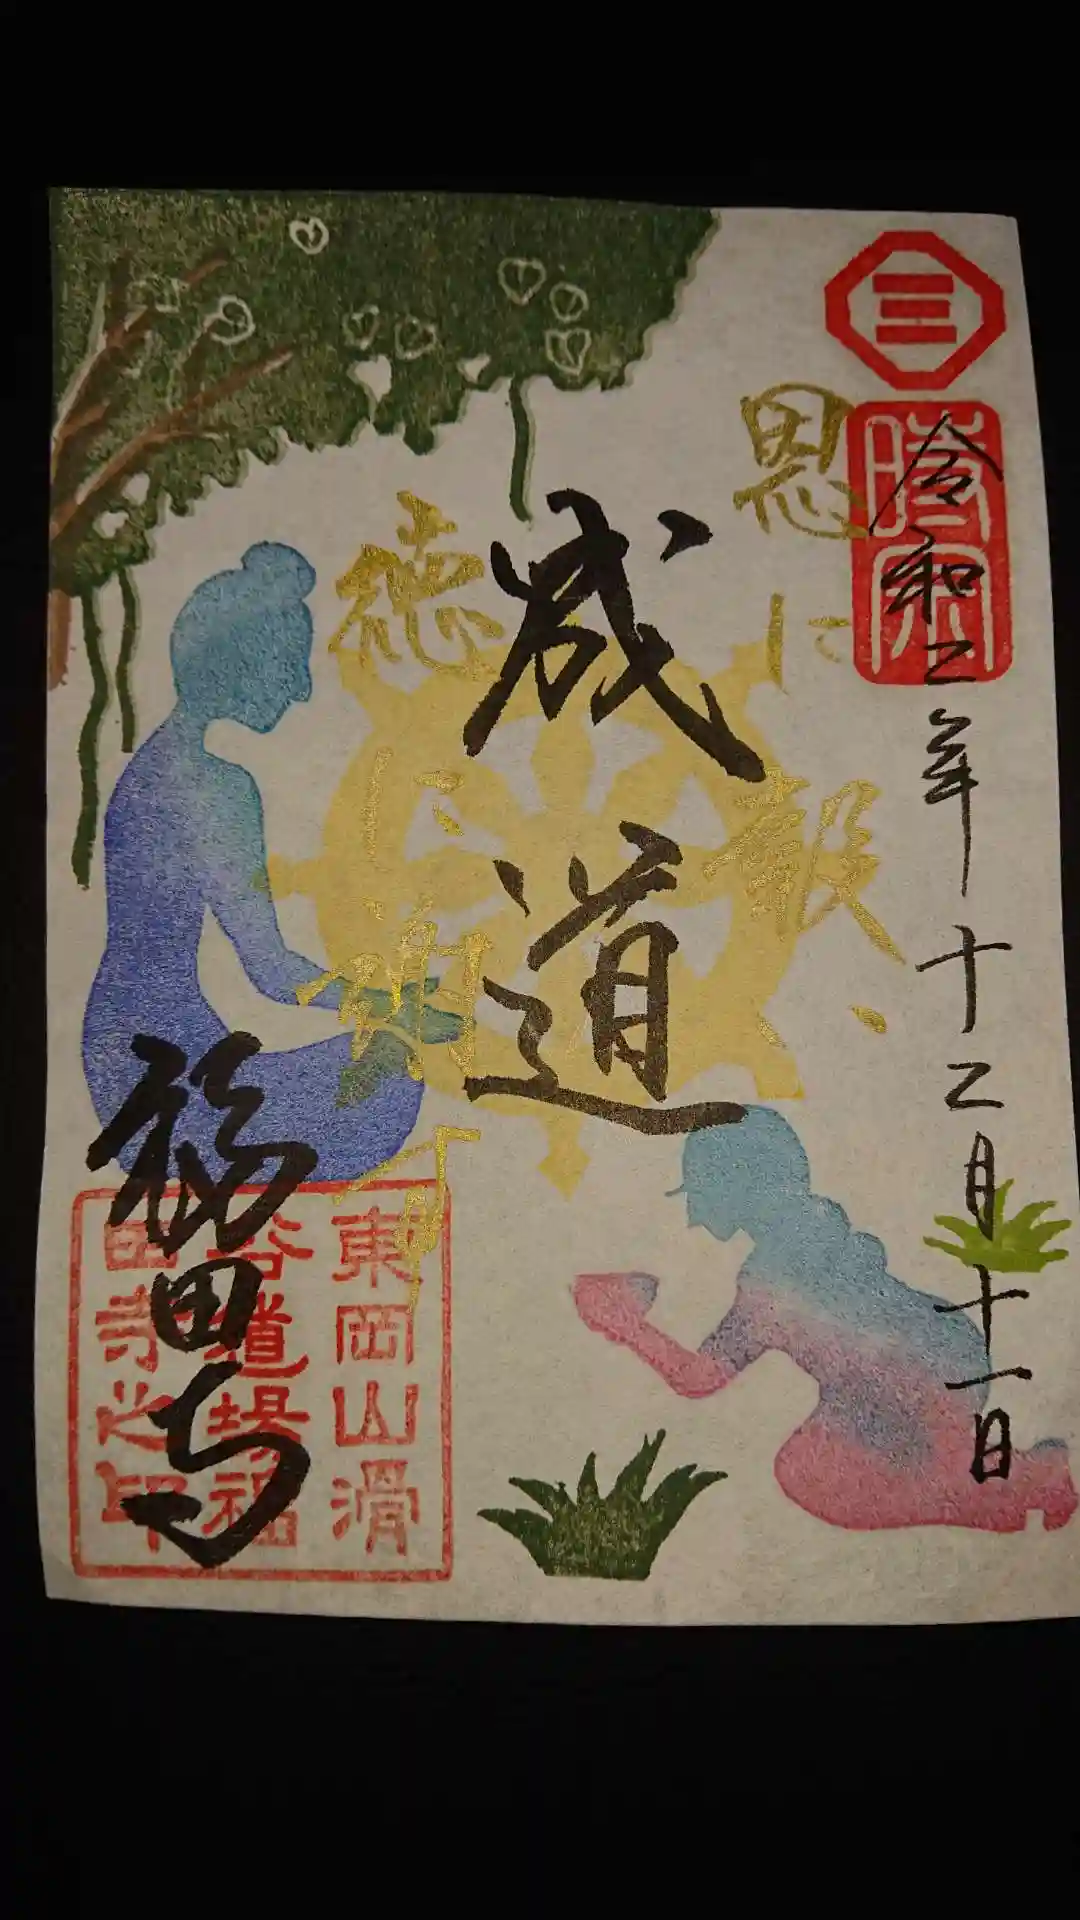 令和二年十二月十一日
時宗
恩に報い
徳に
成道
福田寺
東岡山滑
谷道場福
田寺之印